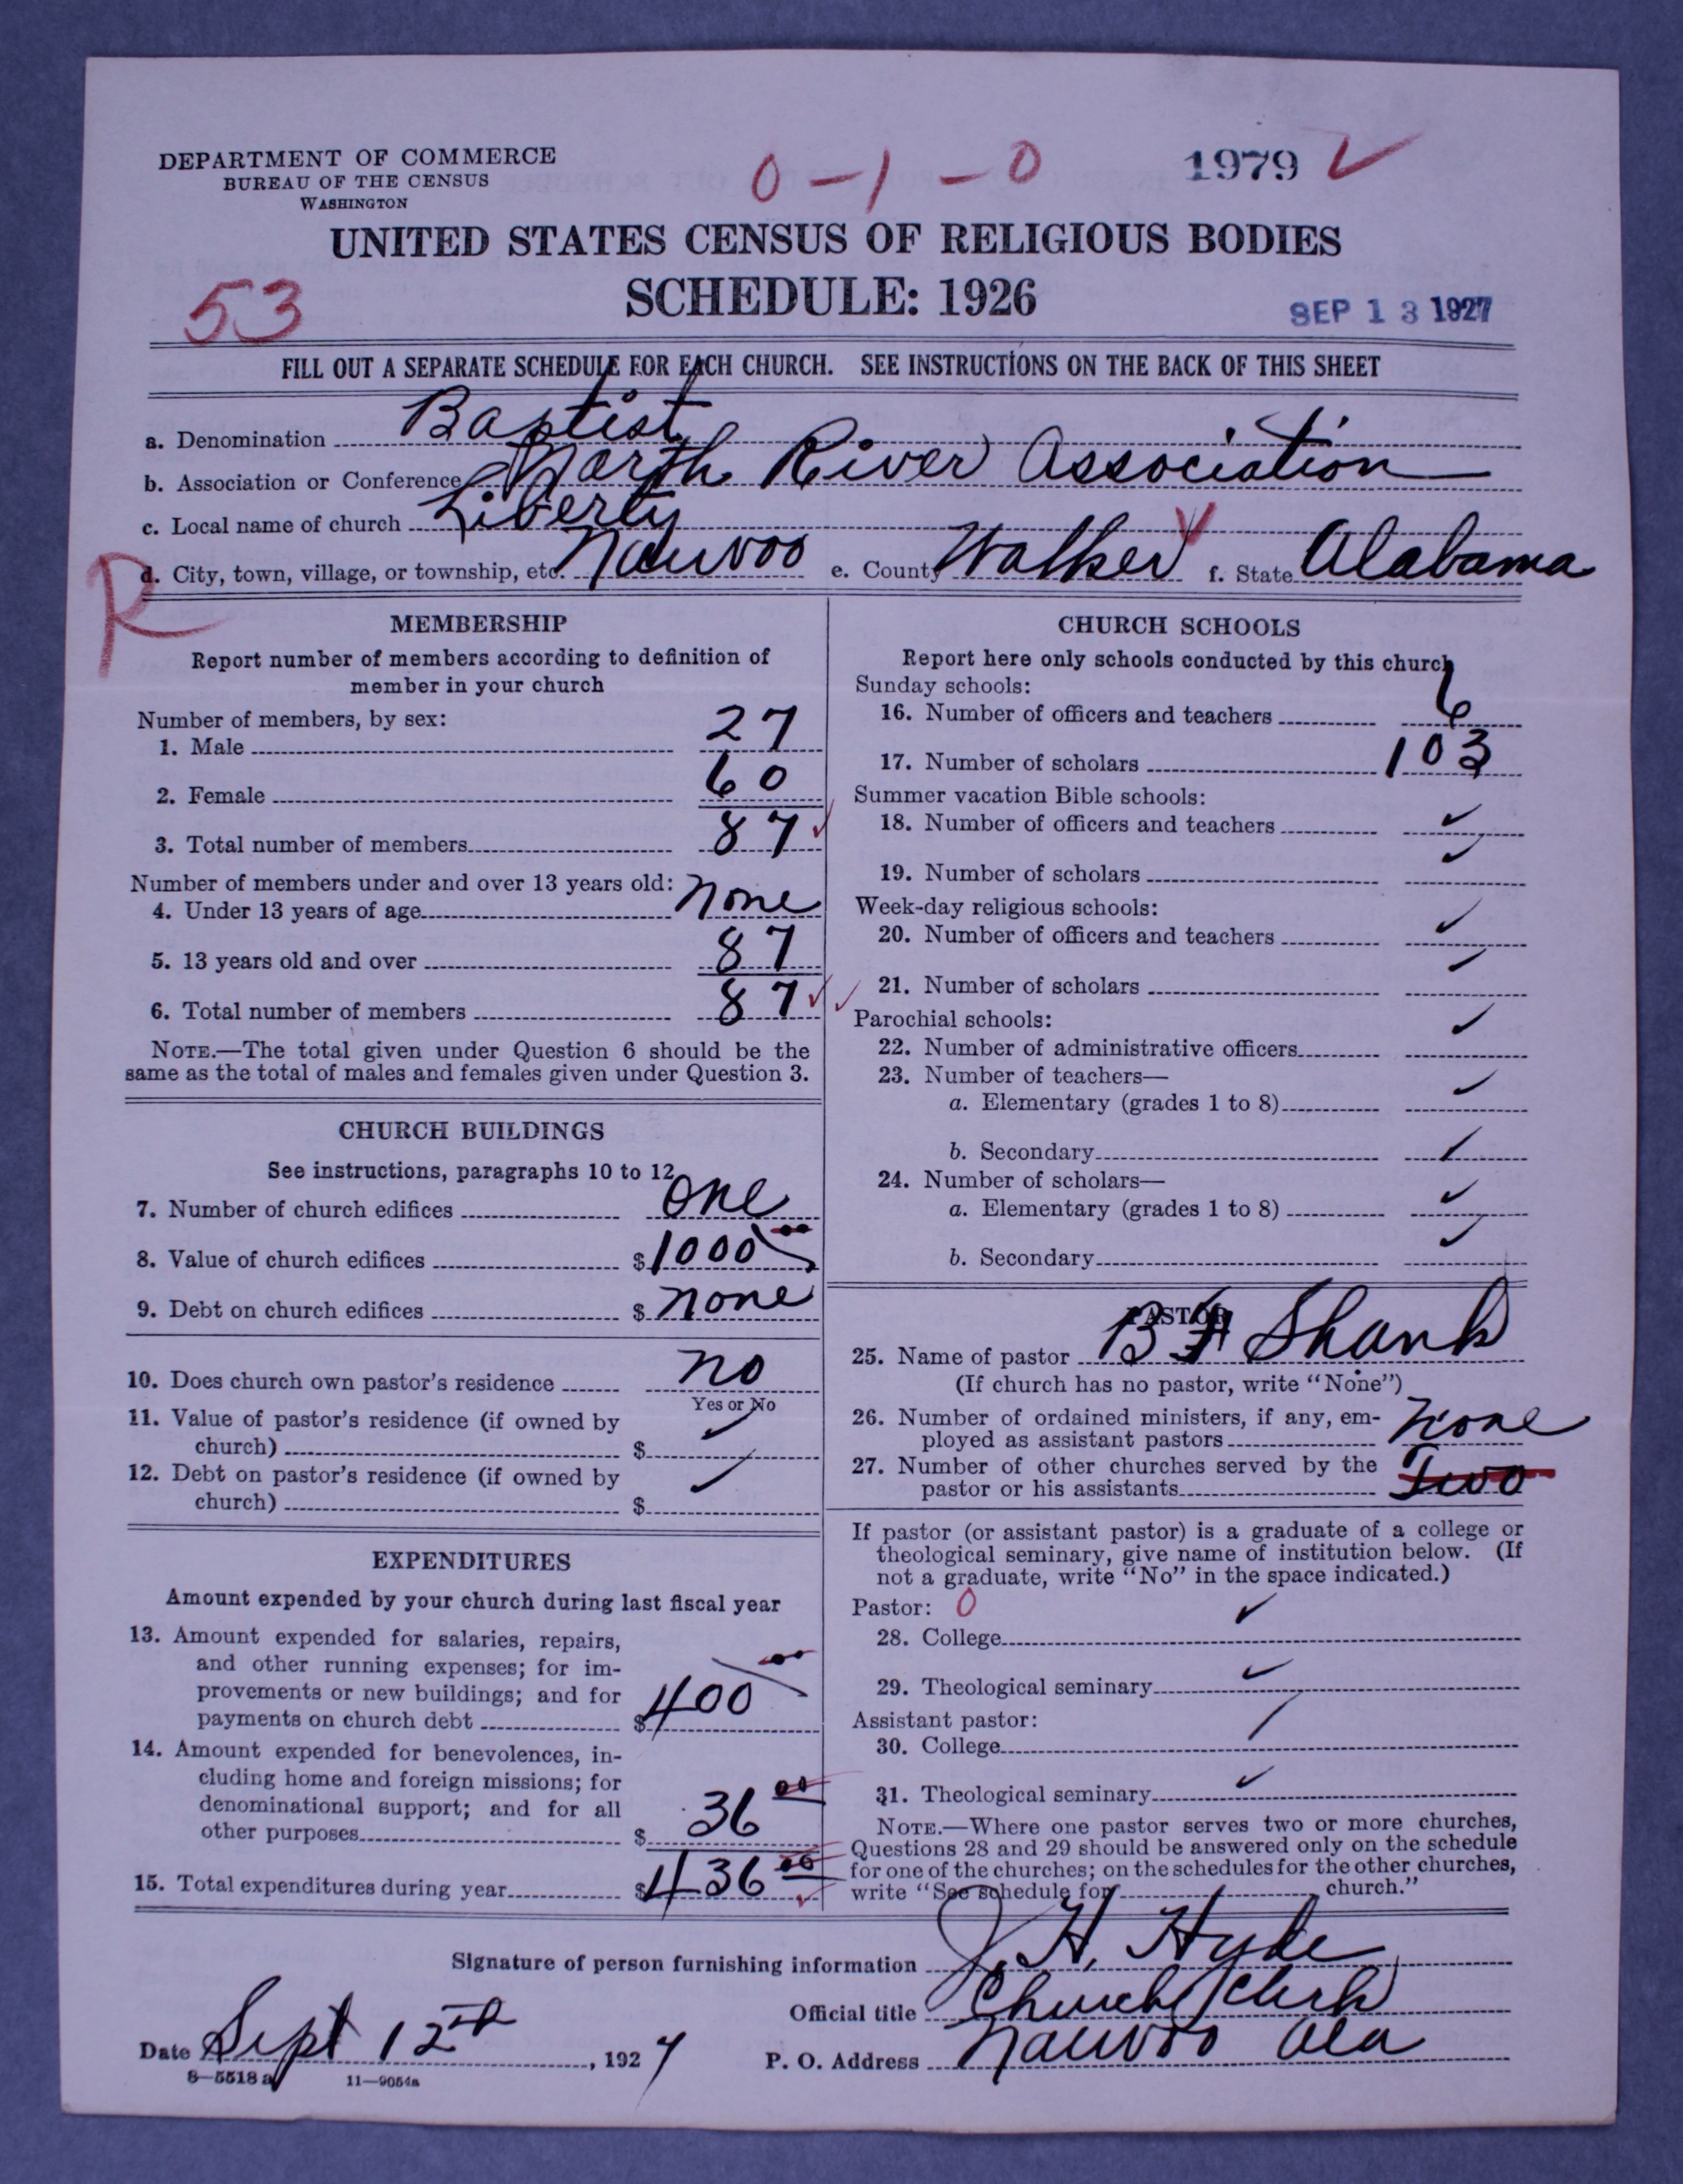 DEPARTMENT OF COMMERCE
BUREAU OF THE CENSUS
WASHINGTON
0 – 1 – 0
1979 ✓
UNITED STATES CENSUS OF RELIGIOUS BODIES
53
SCHEDULE: 1926
SEP 13 1927
FILL OUT A SEPARATE SCHEDULE FOR EACH CHURCH. SEE INSTRUCTIONS ON THE BACK OF THIS SHEET
a. Denomination Baptist
b. Association or Conference North River Association
c. Local name of church Liberty
R
d. City, town, village, or township, etc. Nauvoo e. County Walker ✓ f. State Alabama
MEMBERSHIP
Report number of members according to definition of
member in your church
Number of members, by sex:
1. Male 27
2. Female 60
3. Total number of members 87 ✓
Number of members under and over 13 years old:
4. Under 13 years of age none
5. 13 years old and over 87
6. Total number of members 87 ✓ ✓
NOTE.—The total given under Question 6 should be the
same as the total of males and females given under Question 3.
CHURCH BUILDINGS
See instructions, paragraphs 10 to 12
7. Number of church edifices one
8. Value of church edifices $ 1000 00
9. Debt on church edifices $ none
10. Does church own pastor's residence no
Yes or No
11. Value of pastor's residence (if owned by
church) $ ✓
12. Debt on pastor's residence (if owned by
church) $ ✓
EXPENDITURES
Amount expended by your church during last fiscal year
13. Amount expended for salaries, repairs,
and other running expenses; for im-
provements or new buildings; and for
payments on church debt $ 400 00
14. Amount expended for benevolences, in-
cluding home and foreign missions; for
denominational support; and for all
other purposes $ 36 00
15. Total expenditures during year $ 436 00 ✓
CHURCH SCHOOLS
Report here only schools conducted by this church
Sunday schools:
16. Number of officers and teachers 6
17. Number of scholars 103
Summer vacation Bible schools:
18. Number of officers and teachers ✓
19. Number of scholars ✓
Week-day religious schools:
20. Number of officers and teachers ✓
21. Number of scholars ✓
Parochial schools:
22. Number of administrative officers ✓
23. Number of teachers—
a. Elementary (grades 1 to 8) ✓
b. Secondary ✓
24. Number of scholars—
a. Elementary (grades 1 to 8) ✓
b. Secondary ✓
PASTOR
25. Name of pastor B Shank
(If church has no pastor, write "None")
26. Number of ordained ministers, if any, em-
ployed as assistant pastors none
27. Number of other churches served by the
pastor or his assistants Two
If pastor (or assistant pastor) is a graduate of a college or
theological seminary, give name of institution below. (If
not a graduate, write "No" in the space indicated.)
Pastor: 0
28. College ✓
29. Theological seminary ✓
Assistant pastor:
30. College ✓
31. Theological seminary ✓
NOTE.—Where one pastor serves two or more churches,
Questions 28 and 29 should be answered only on the schedule
for one of the churches; on the schedules for the other churches,
write "See schedule for church."
Signature of person furnishing information J. H. Hyde
Official title Church Clerk
Date Sept 12th, 1927
P. O. Address Nauvoo Ala
8—5518 a 11—9054a